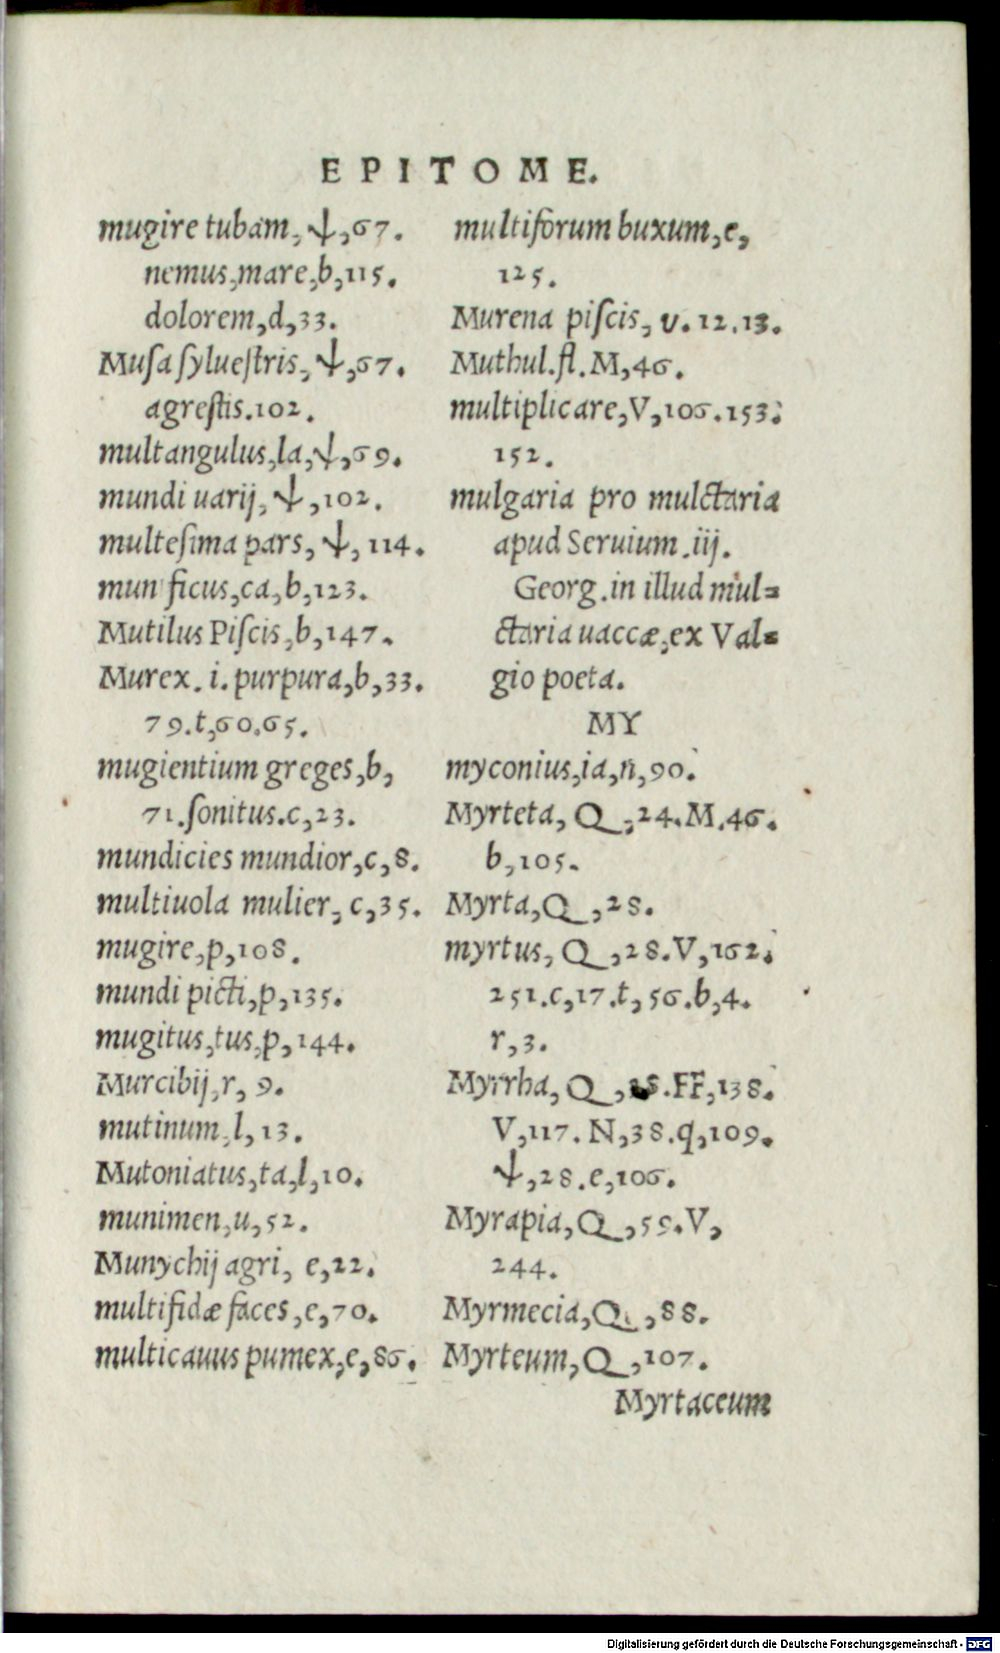 EPITOME.
mugire tubam, ψ, 67.
nemus, mare, b, 115.
dolorem, d, 33.
Musa syluestris, ψ, 67.
agrestis. 102.
multangulus, la, ψ, 69.
mundi uarij, ψ, 102.
multesima pars, ψ, 114.
mun ficus, ca, b, 123.
Mutilus Piscis, b, 147.
Murex. i. purpura, b, 33.
79. t, 60. 65.
mugientium greges, b,
71. sonitus. c, 23.
mundicies mundior, c, 8.
multiuola mulier, c, 35.
mugire, p, 108.
mundi picti, p, 135.
mugitus, tus, p, 144.
Murcibij, r, 9.
mutinum, l, 13.
Mutoniatus, ta, l, 10.
munimen, u, 52.
Munychij agri, e, 22.
multifidæ faces, e, 70.
multicauus pumex, e, 86.
multiforum buxum, e,
125.
Murena piscis, v. 12. 13.
Muthul. fl. M, 46.
multiplicare, V, 106. 153.
152.
mulgaria pro mulctaria
apud Seruium. iij.
Georg. in illud mul=
ctaria uaccæ, ex Val=
gio poeta.
MY
myconius, ia, n, 90.
Myrteta, Q, 24. M. 46.
b, 105.
Myrta, Q, 28.
myrtus, Q, 28. V, 162.
251. c, 17. t, 56. b, 4.
r, 3.
Myrrha, Q, FF, 138.
V, 117. N, 38. q, 109.
ψ, 28. e, 106.
Myrapia, Q, 59. V,
244.
Myrmecia, Q, 88.
Myrteum, Q, 107.
Myrtaceum
Digitalisierung gefördert durch die Deutsche Forschungsgemeinschaft - DFG